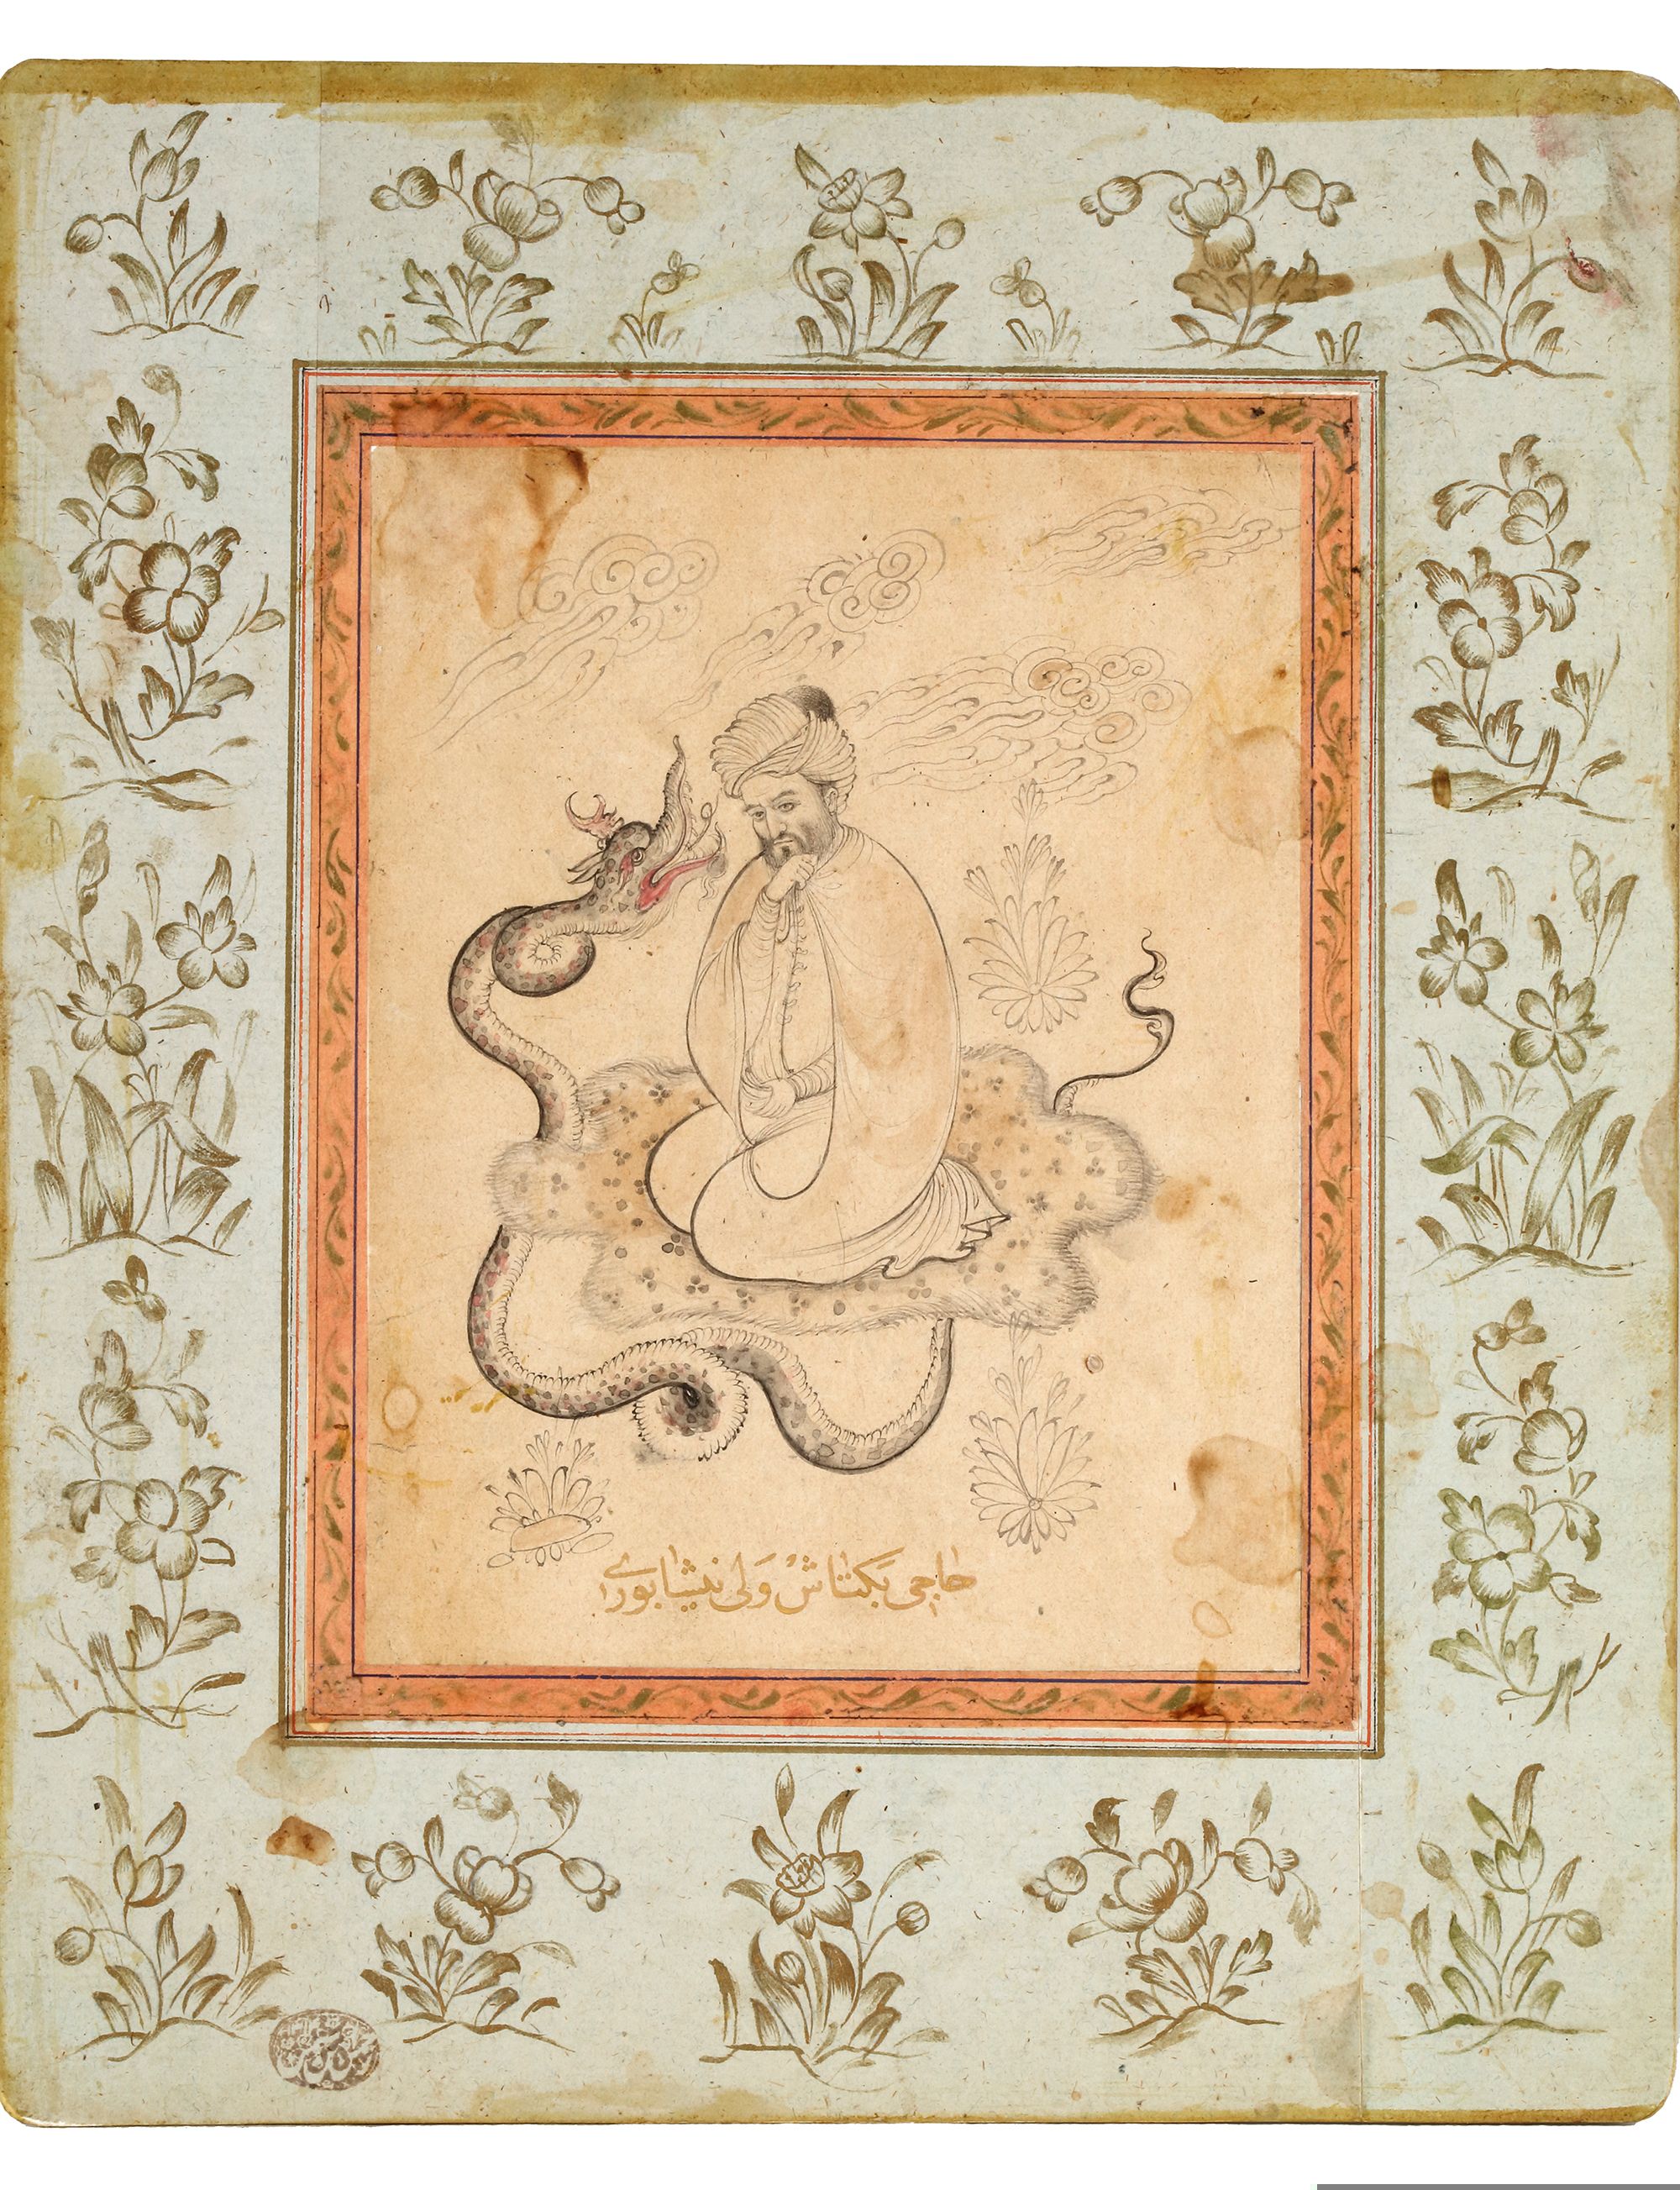 حاجی بَکتاش وَلی نیشابوری